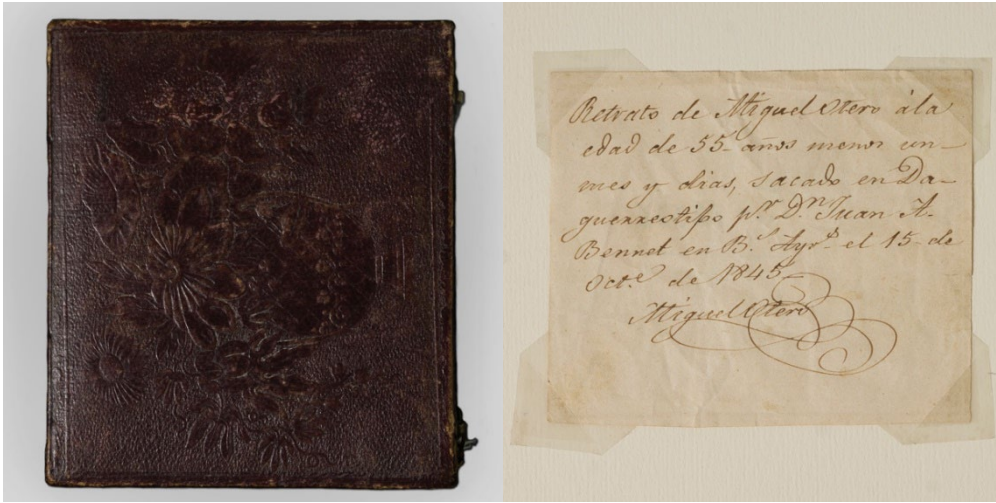 Retrato de Miguel Otero á la
edad de 55 - años menos un -
mes y dias, sacado en Da-
guerreotipo p.r D.n Juan A.
Bennet en B.s Ayr.s el 15 - de
Oct.e de 1845 -
Miguel Otero